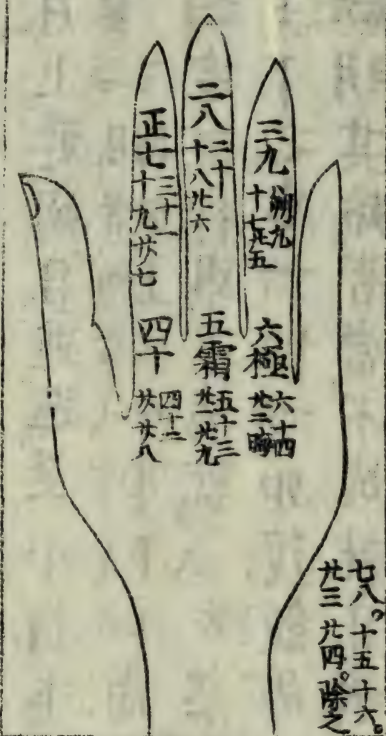 三九
朔九
十七廿五
二八
二十
十八廿六
正七
三十一
十九廿七
六極
六十四
廿二晦
五霜
五十三
廿一廿九
四十
四十二
廿廿八
七八。十五十六。
廿三廿四。除之